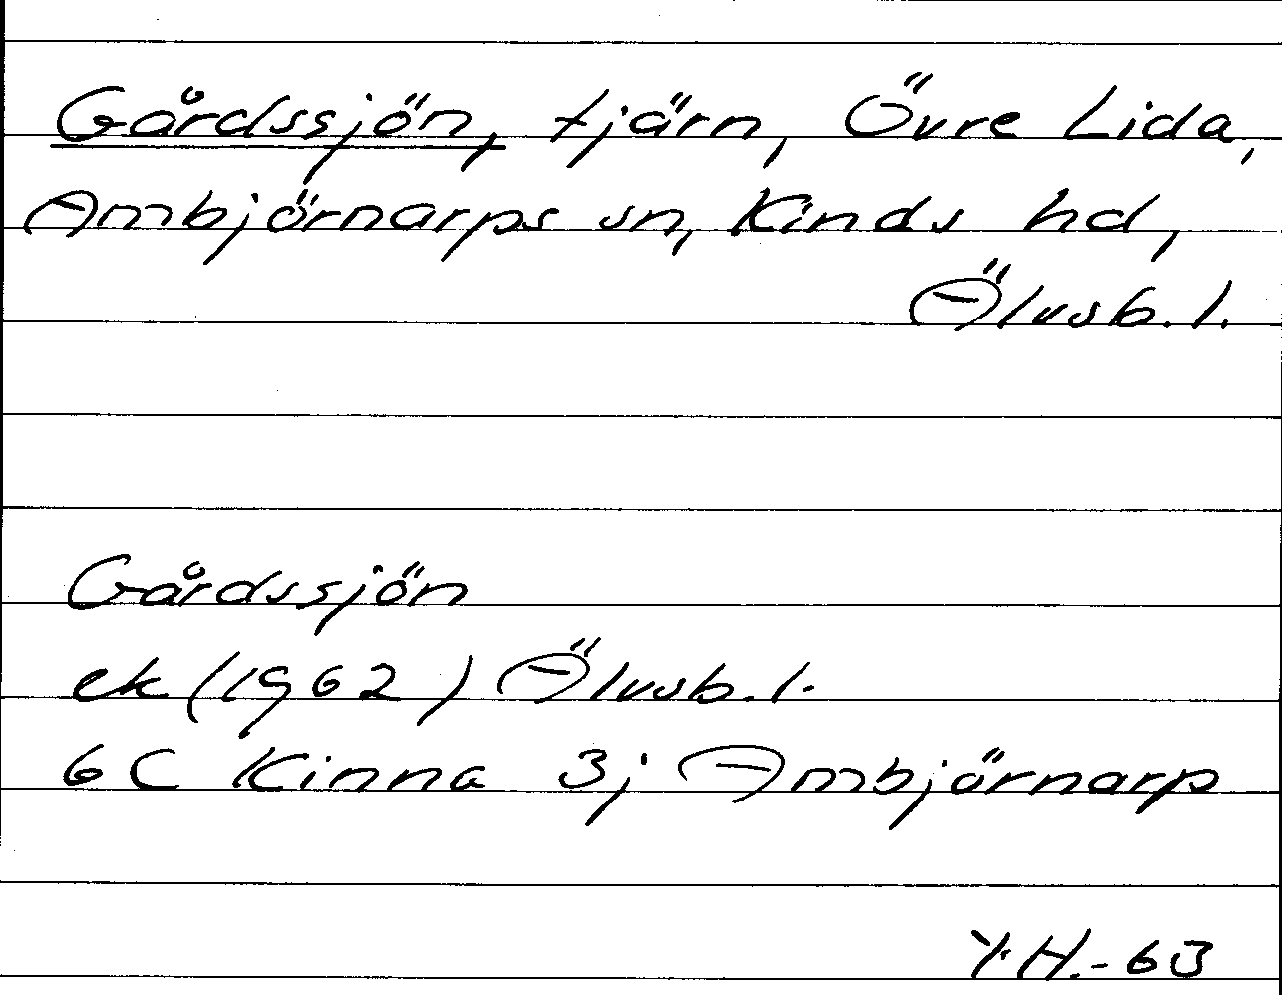 Gårdssjön, tjärn, Övre Lida,
Ambjörnarps sn, Kinds hd,
Älvsb. l.
Gårdssjön
ek (1962) Älvsb. l.
6C Kinna 3j Ambjörnarp
Y.H.-63